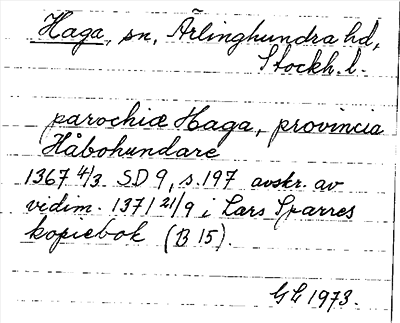 Haga, sn, Ärlinghundra hd,
Stockh. l.
parochiæ Haga, provincia
Håbohundare
1367 4/3 SD 9, s. 197 avskr. av
vidim. 1371 21/9 i Lars Sparres
kopiebok (B 15).
1973.